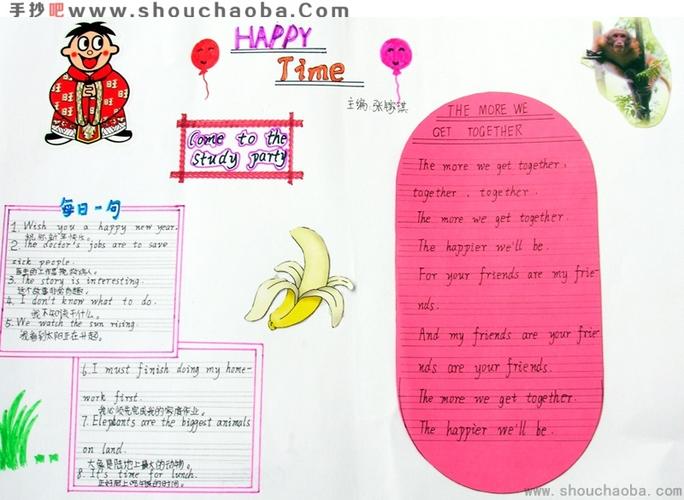 手抄吧 www.shouchaoba.com
HAPPY
Time
主编:张
Come to the
study party
每日一句
1. Wish you a happy new year.
祝你新年快乐。
2. The doctor's jobs are to save
sick people.
医生的工作是挽救病人。
3. The story is interesting.
这个故事非常有趣。
4. I don't know what to do.
我不知该干什么。
5. We watch the sun rising.
我看到太阳正在升起。
6. I must finish doing my home-
work first.
我必须先完成我的家庭作业。
7. Elephants are the biggest animals
on land.
大象是陆地上最大的动物。
8. It's time for lunch.
正好是吃午饭的时间。
THE MORE WE
GET TOGETHER
The more we get together,
together, together.
The more we get together.
The happier we'll be.
For your friends are my frie-
nds.
And my friends are your frie-
nds are your friends.
The more we get together.
The happier we'll be.
www.shouchaoba.com
旺
旺
旺
旺